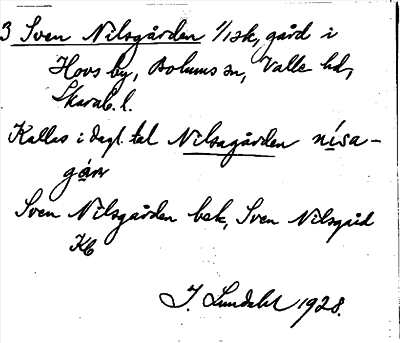 3 Sven Nilsgården 1/1 sk, gård i
Hovs by, Bolums sn, Valle hd,
Skarab. l.
Kallas i dagl. tal Nilsagården nísa-
gán
Sven Nilsgården bek, Sven Nilsgård
Kb
J. Lundahl 1928.